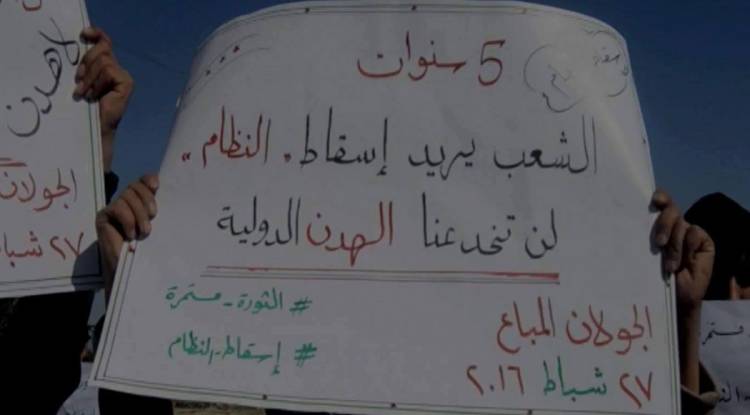 5 سنوات
الشعب يريد إسقاط "النظام"
لن تخدعنا الهدن الدولية
# الثورة_مستمرة
# إسقاط_النظام
الجولان المباع
٢٧ شباط ٢٠١٦
لا هدن
الجولان
٢٧ شباط